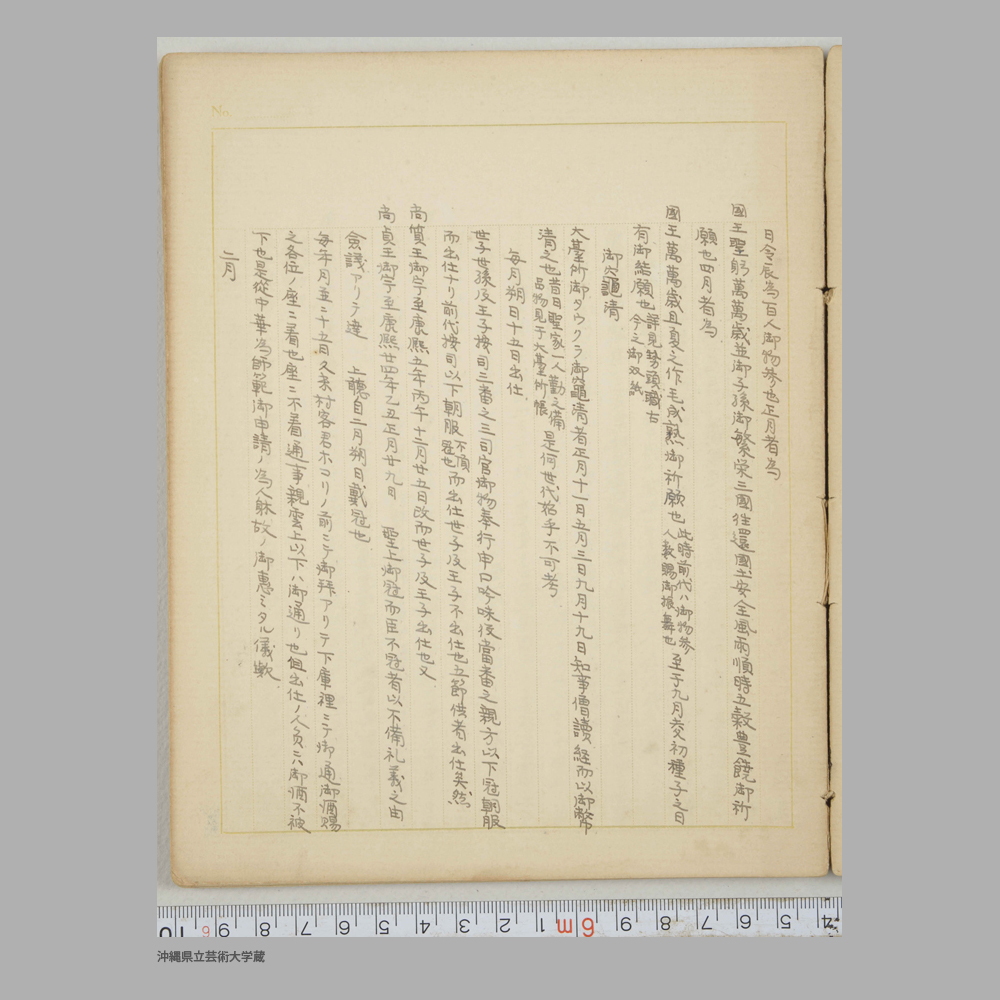 日令辰為百人御物参也正月者為
國王聖躬萬萬歳並御子孫御繁栄三國往還國土安全風雨順時五穀豊饒御祈
願也四月者為
國王萬萬歳且夏之作毛成熟御祈願也此時前代ハ御物参人数賜御振舞也至于九月初種子之日
有御結願也詳見勢頭職古今之御双紙
御火龕清
大臺所御タウクラ御龕清者正月十一日五月三日九月十九日知事僧讀経而以御幣
清之也昔日聖家一人勤之備品物見于大臺所帳是何世代始乎不可考
毎月朔日十五日出仕
世子世孫及王子按司三番之三司官御物奉行申口吟味役當番之親方以下冠朝服
而出仕ナリ前代按司以下朝服不頂冠也而出仕世子及王子不出仕也五節供者出仕矣然
尚質王御宇至康熙五年丙午十二月廿五日改而世子及王子出仕也又
尚貞王御宇至康熙廿四年乙丑正月廿九日 聖上御冠而臣不冠者以不備礼義之由
僉議アリテ達 上聴自二月朔日戴冠也
毎年月並ニ十五日久米村客君ホコリノ前ニテ御拜アリテ下庫裡ニテ御通御酒賜
之各位ノ座ニ着也座ニ不着通事親雲上以下ハ御通リ也但出仕ノ人負ニハ御酒不被
下也是從中華為師範御申請ノ為人躰故ノ御惠ミタル儀歟
二月
No.
10 9 8 7 5 4 3 2 1 6m 9 8 7 6 5 4
沖縄県立芸術大学蔵